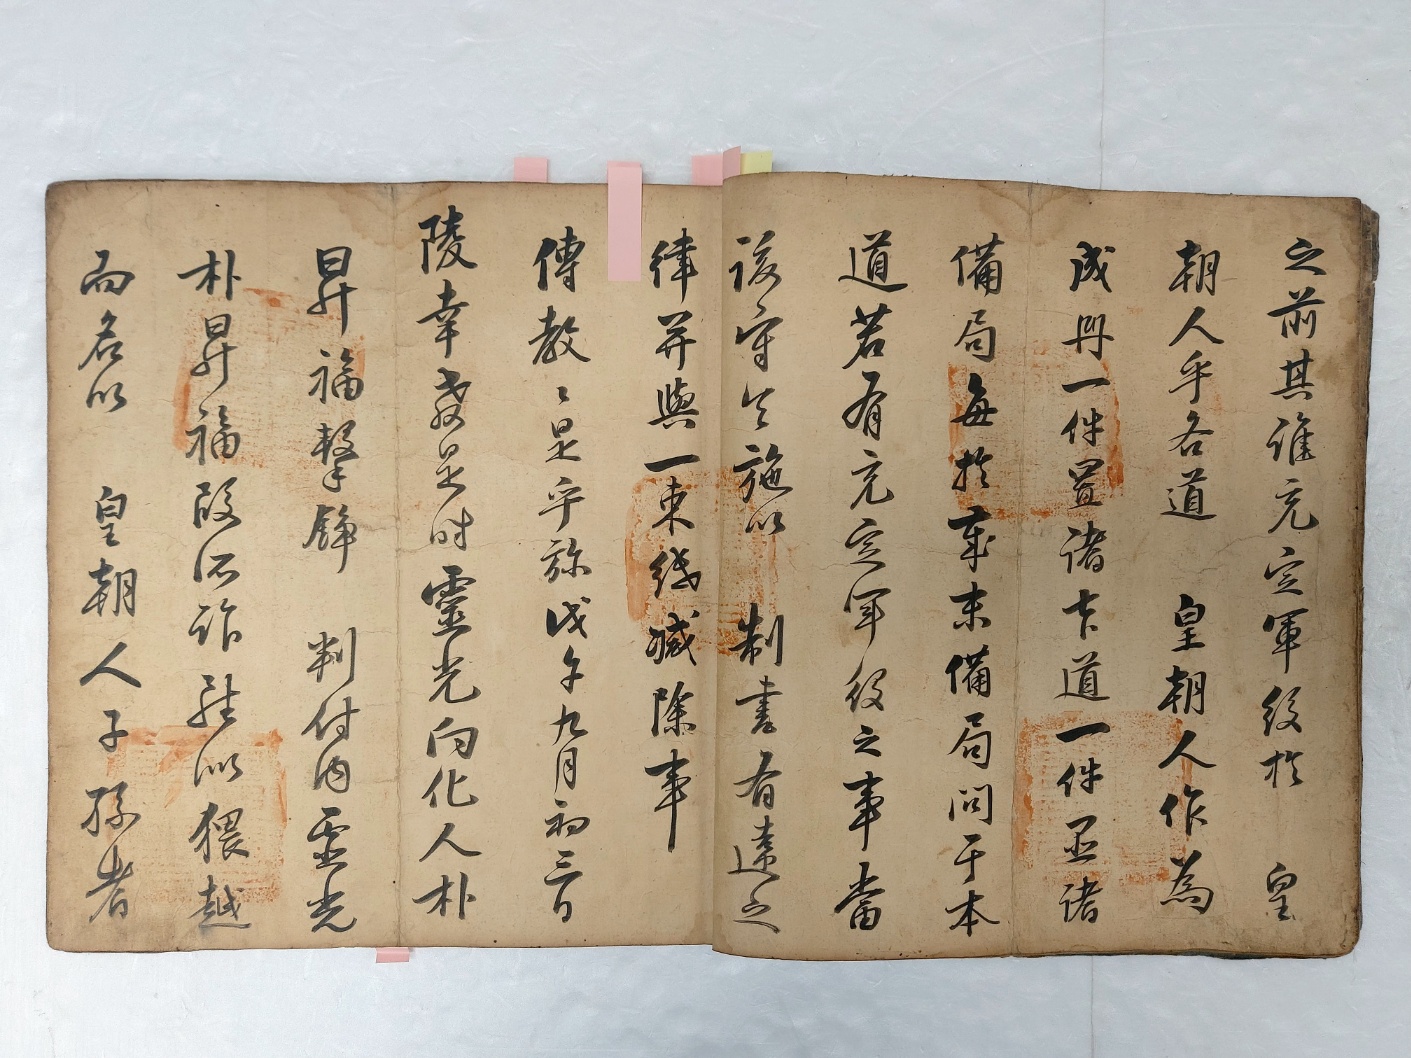 之前其誰充定軍役於 皇
朝人乎各道 皇朝人作為
成冊一件置諸本道一件置諸
備局每於歲末備局問于本
道若有充定軍役之事當
該守令施以 制書有違之
律並與一束綫減除事
傳教是乎旀戊午九月初三日
陵幸教是時靈光向化人朴
昇福擊錚 判付內靈光
朴昇福段所訴雖似猥越
而名以 皇朝人子孫者